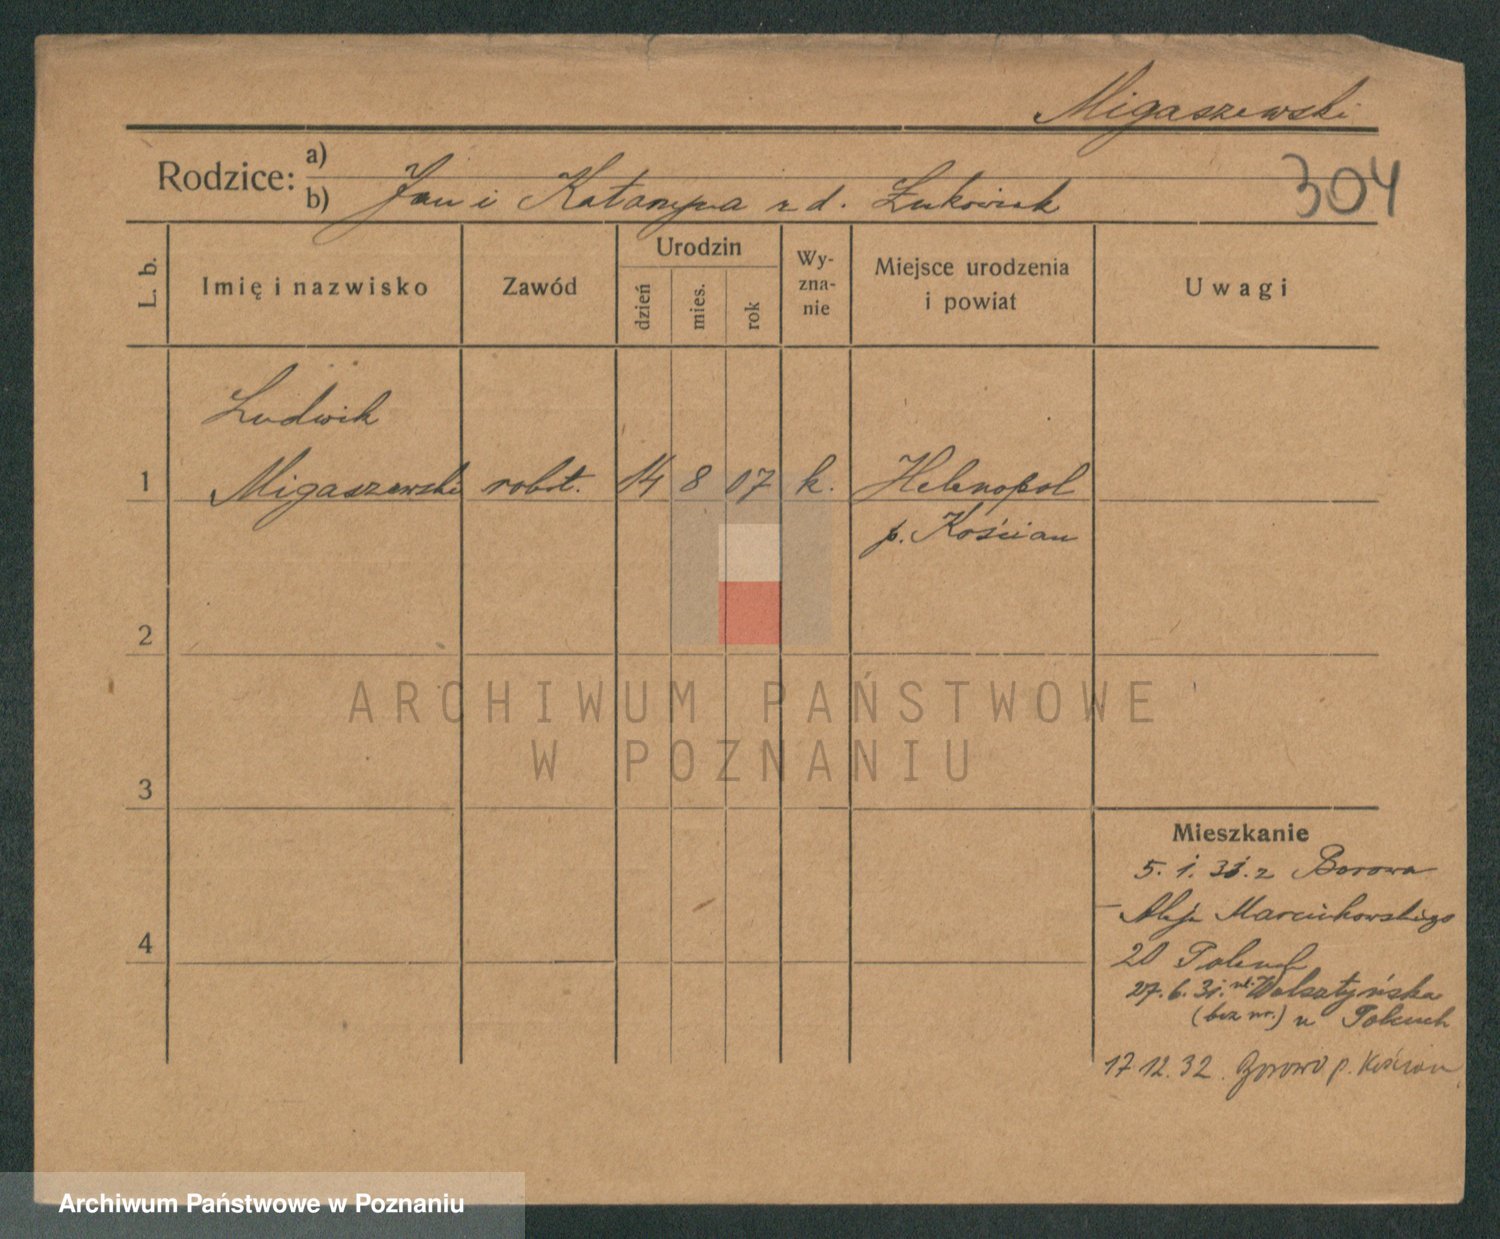 Migaszewski
Rodzice: a)
304
b) Jan i Katarzyna z d. Łukowiak
L. b.
Imię i nazwisko
Zawód
Urodzin
dzień
mies.
rok
Wy-
zna-
nie
Miejsce urodzenia
i powiat
Uwagi
Ludwik
1 Migaszewski robot. 14 8 07 k. Helenopol
p. Kościan
2
3
4
ARCHIWUM PAŃSTWOWE
W POZNANIU
Mieszkanie
5. 1. 31. z Borowa
Marcinkowskiego
20
27. 6. 31. ul. Wolsztyńska
(bez nr.) u
17 12. 32. Borowo p. Kościan
Archiwum Państwowe w Poznaniu